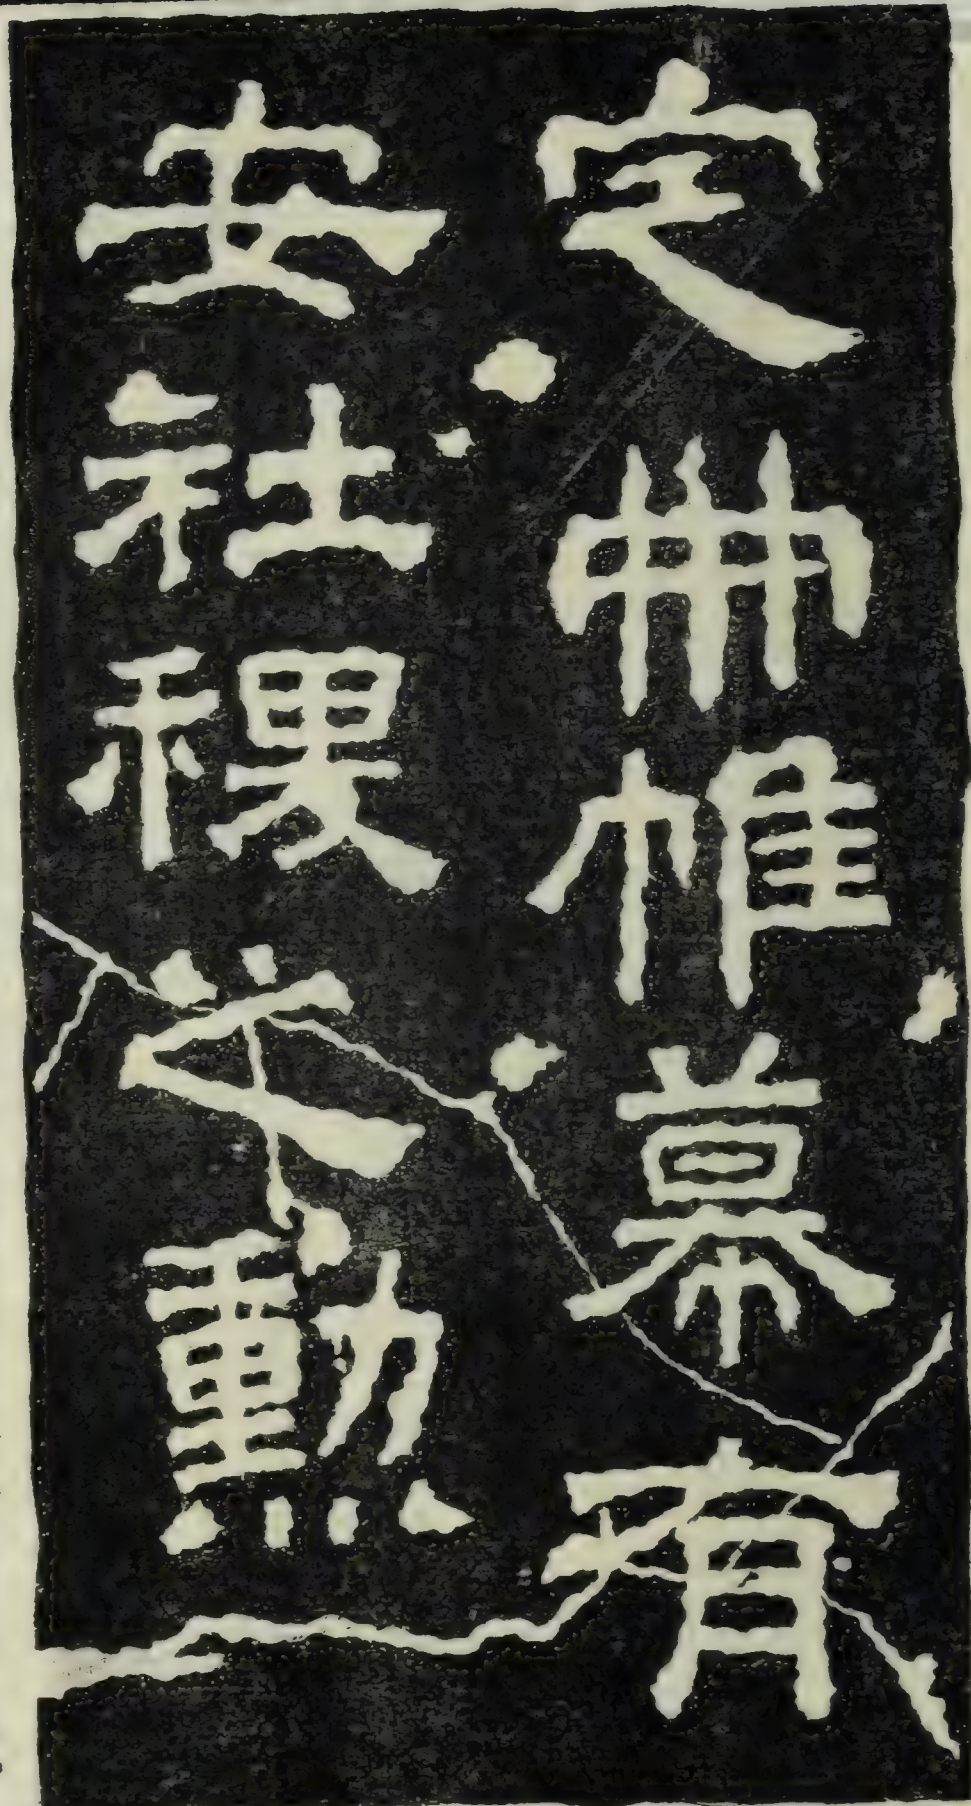 定冊帷幕有
安社稷之勳